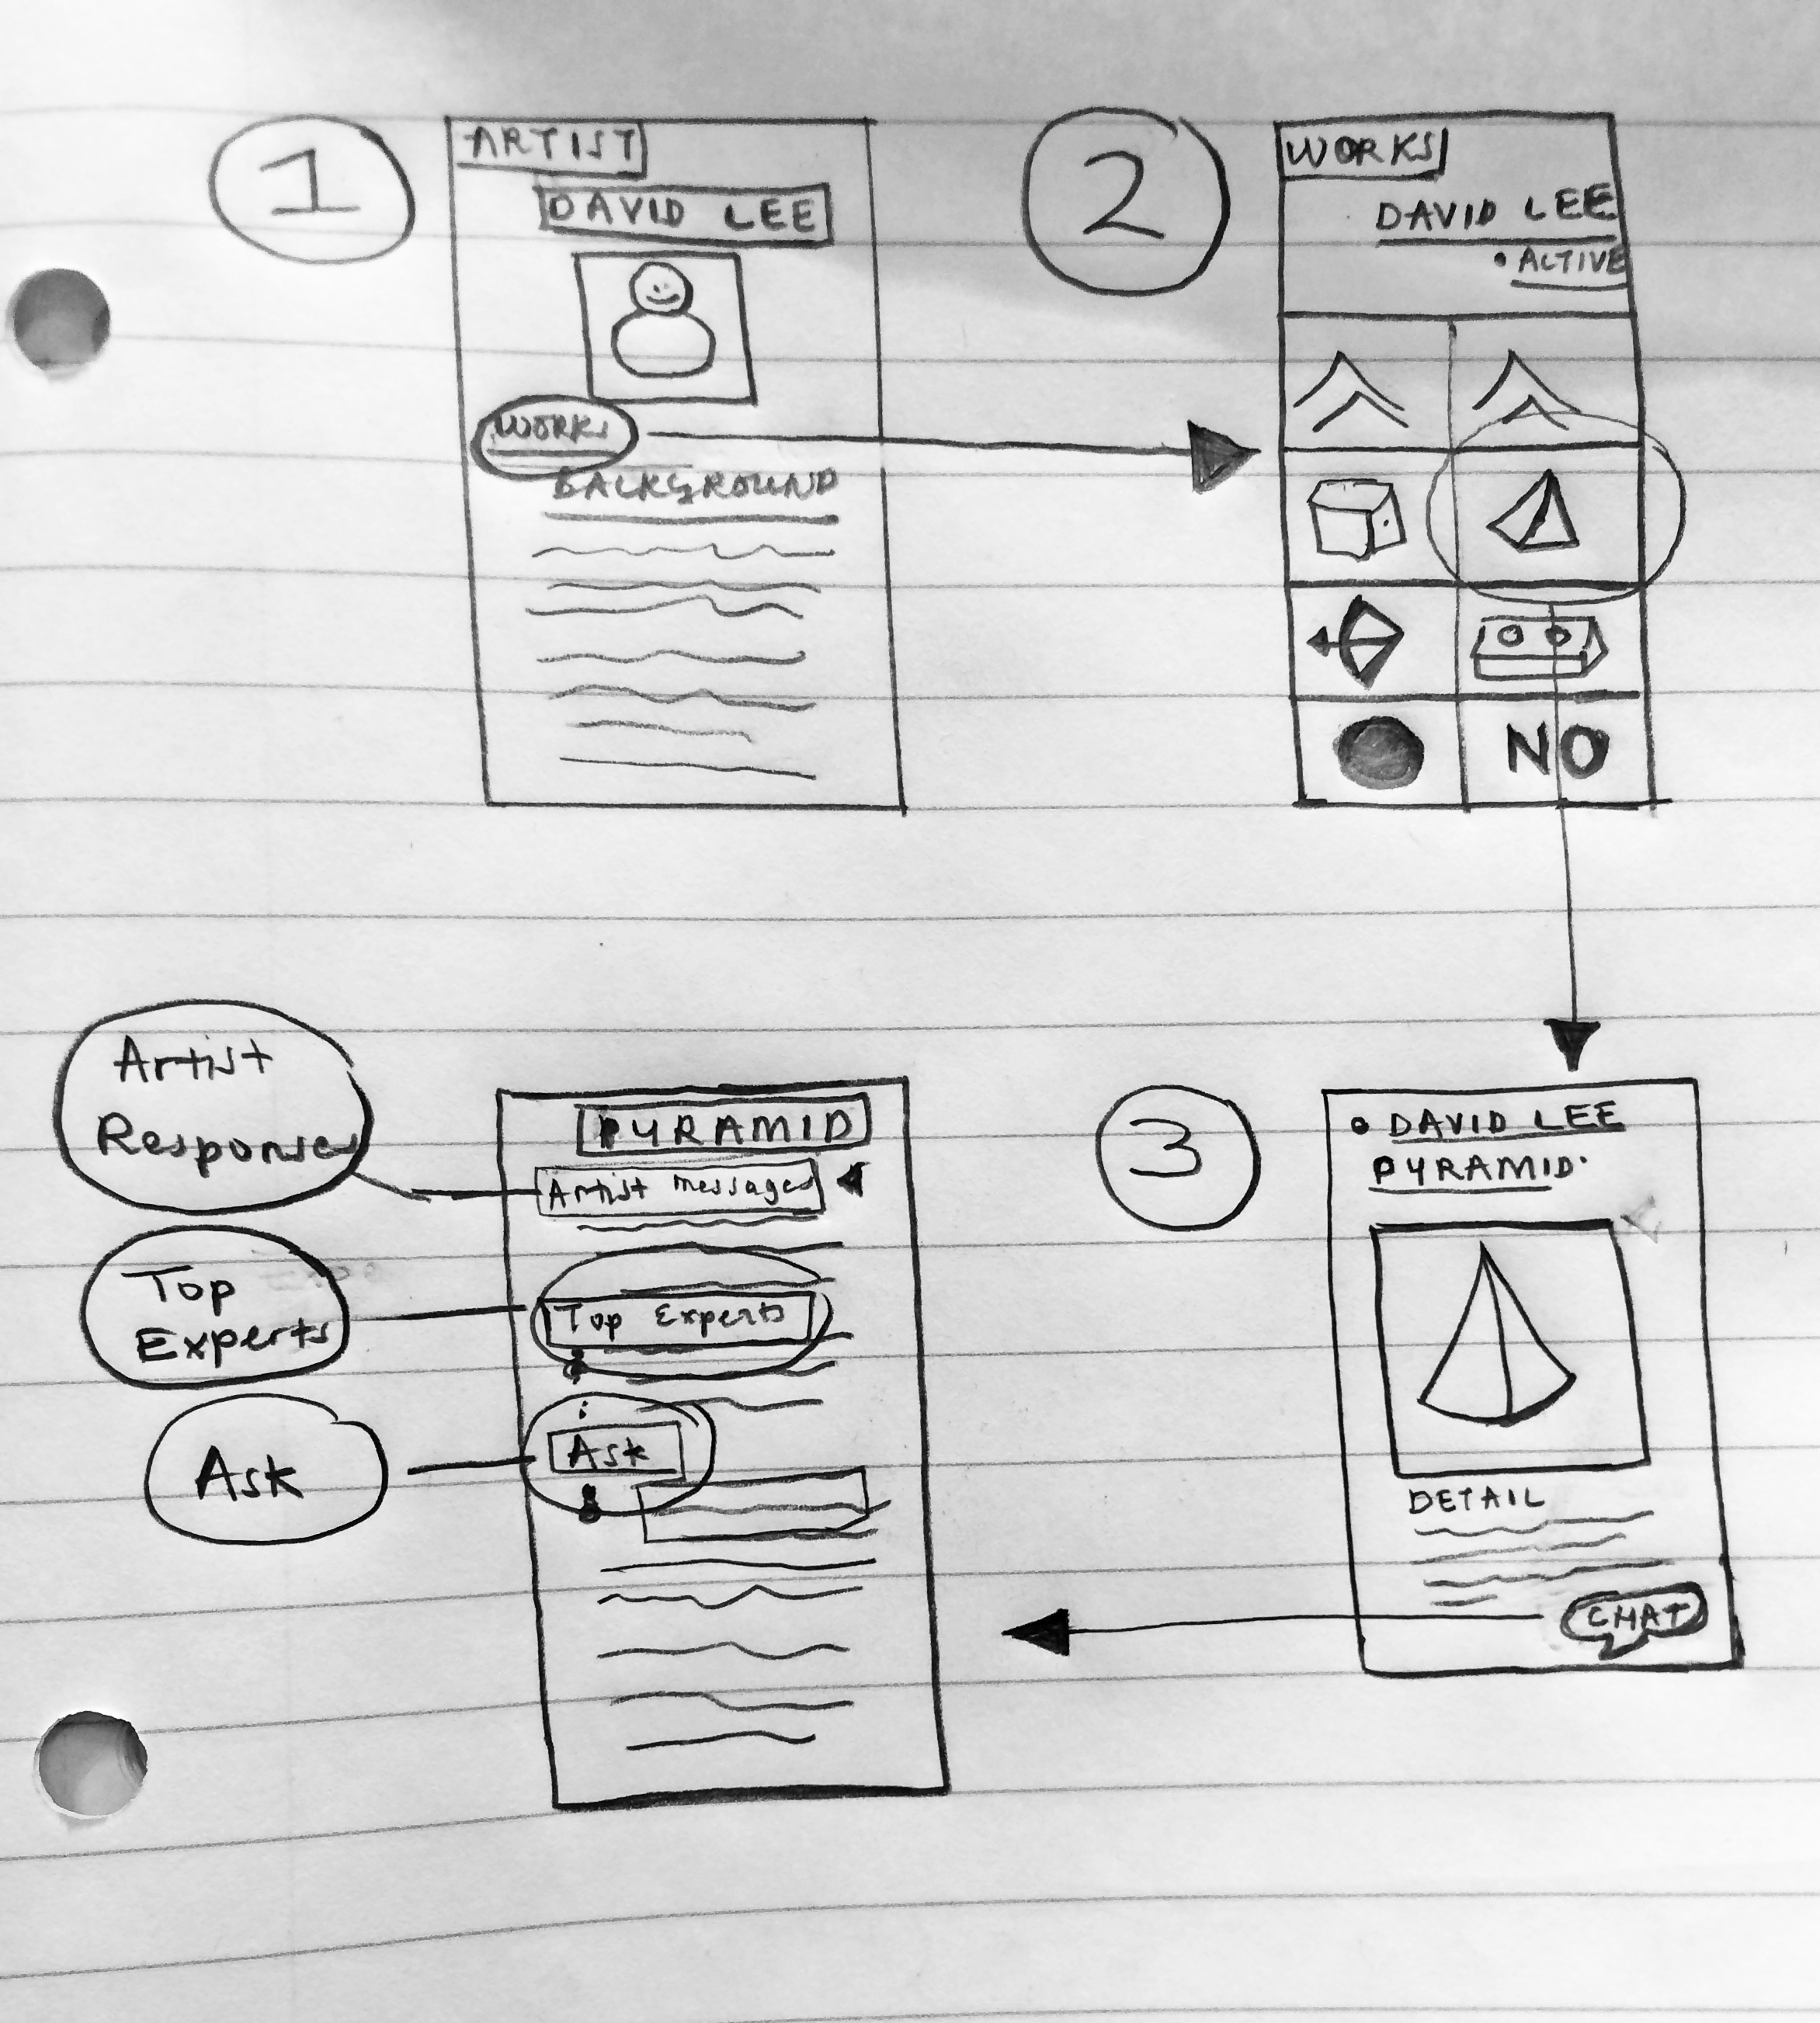 1
ARTIST
DAVID LEE
WORKS
BACKGROUND
2
WORKS
DAVID LEE
• ACTIVE
NO
3
• DAVID LEE
PYRAMID
DETAIL
CHAT
PYRAMID
Artist messages
Top Experts
Ask
Artist
Responses
Top
Experts
Ask